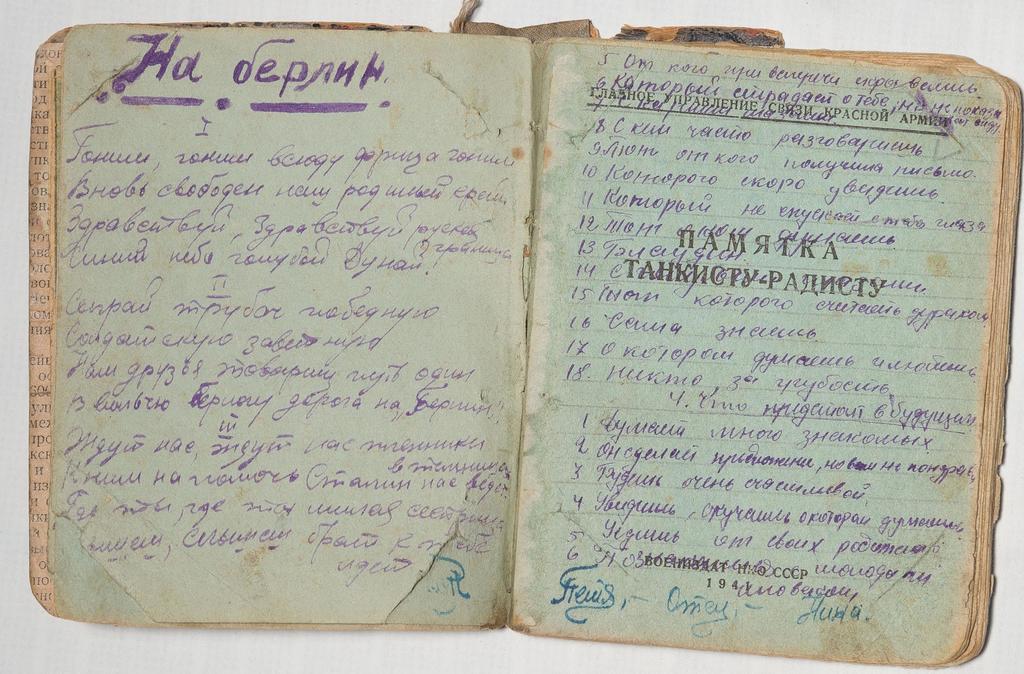 На берлин.
I
Гоним, гоним всюду фрица гоним
Вновь свободен наш родимый край
Здравствуй, Здравствуй русская граница
Синий небо голубой Дунай!
II
Сыграй трубач победную
Солдатскую заветную
Нам друзья товарищи путь один
В берлогу дорога на Берлин!
III
Ждут нас, ждут нас пленники в темницах
К ним на помочь Сталин нас ведет
Где ты, где ты милая сестрица
брат к тебе
идет
5 От кого при встречи скрываешь
6 Который страдает о тебе, но не показы
ГЛАВНОЕ УПРАВЛЕНИЕ СВЯЗИ КРАСНОЙ АРМИИ
8 С кем часто разговариваешь
9 от кого получила письмо.
10 Которого скоро увидишь.
11 Который не спускает с тебя глаза
12 Тот о ком думаешь
13
ПАМЯТКА
ТАНКИСТУ-РАДИСТУ
14 С
15 которого считаешь дураком.
16 Сама знаешь
17 О котором думаешь и любишь
18. Никто, за грубость
4. Что предстоит в будущем
1 много знакомых
2 Он сделай предложение, но вам не понрав
3 Будешь очень счастливой
4 Увидишь, скучаешь о котором думаешь
5 Уедешь от своих родителей
6
ВОЕНИЗДАТ НКО СССР
1941
Петя, - Отец, - Нина.